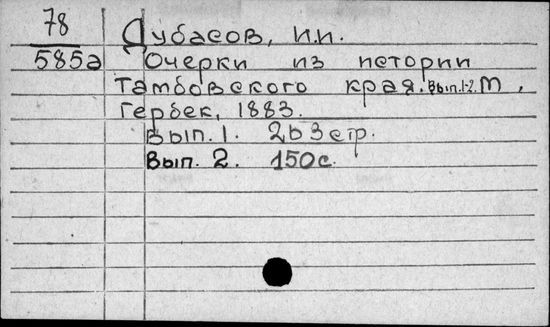 78 Дубасов, И.И.
585а Очерки из истории
Тамбовского края. Вып. 1-2. М,
Гербек, 1883.
Вып. 1. 263 стр.
Вып. 2. 150 с.